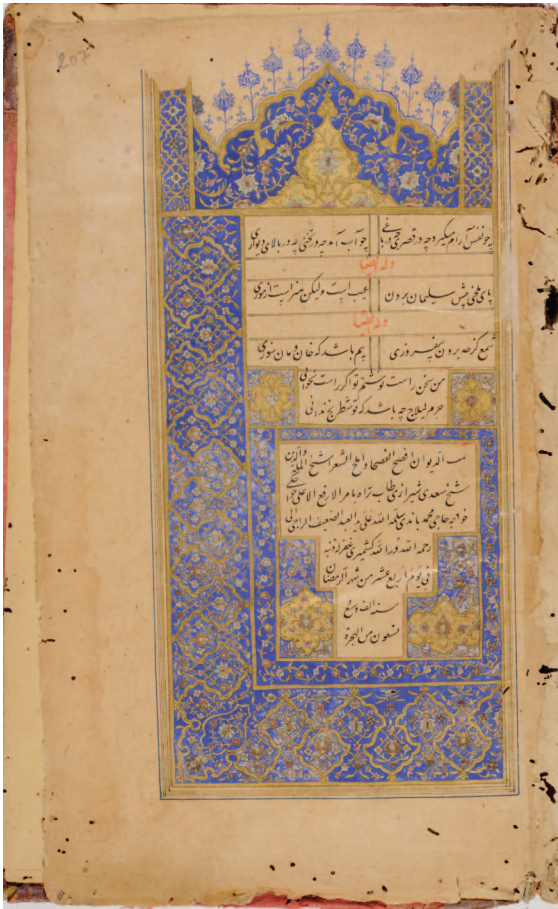 207
چو نفس آرام میگیرد چه در قصری چه در باغی
چو آب آمد چه در تختی چه در بالای دیواری
وله ایضا
پای ملخی پیش سلیمان بردن
عیب است ولیکن هنر است از موری
وله ایضا
شمع کز حد برون بیفروزی
بیم باشد که خان و مان سوزی
من سخن راست نوشتم تو اگر راست نخوانی
جرم لیلاج چه باشد که تو شطرنج ندانی
تمت الدیوان افصح الفصحا و املح الشعرا شیخ المله والدین
شیخ سعدی شیرازی طاب ثراه بامر الارفع الاعلی
خواجه حاجی محمد باندی سلمه الله علی ید العبد الضعیف الراجی الی
رحمه الله نورالله کشمیری غفر ذنبه
فی یوم اربع عشر من شهر الرمضان
سنه الف و سبع
تسعون من الهجرة